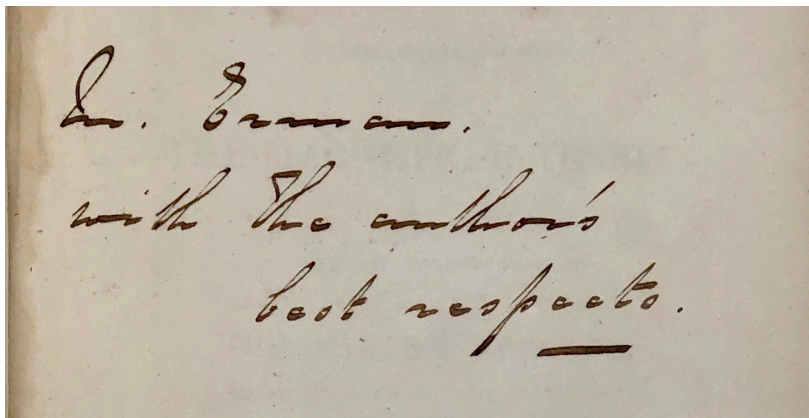 Dr. Erman.
with the author's
best respects.